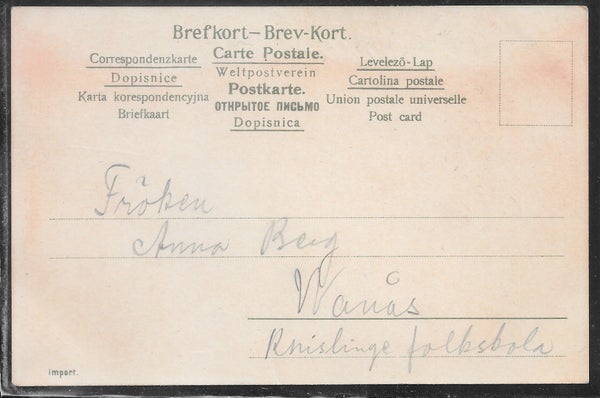 Brefkort–Brev-Kort.
Correspondenzkarte
Carte Postale.
Levelező-Lap
Dopisnice
Weltpostverein
Cartolina postale
Karta korespondencyjna
Postkarte.
Union postale universelle
Briefkaart
ОТКРЫТОЕ ПИСЬМО
Post card
Dopisnica
Fröken
Anna Berg
Wanås
Knislinge folkskola
import.